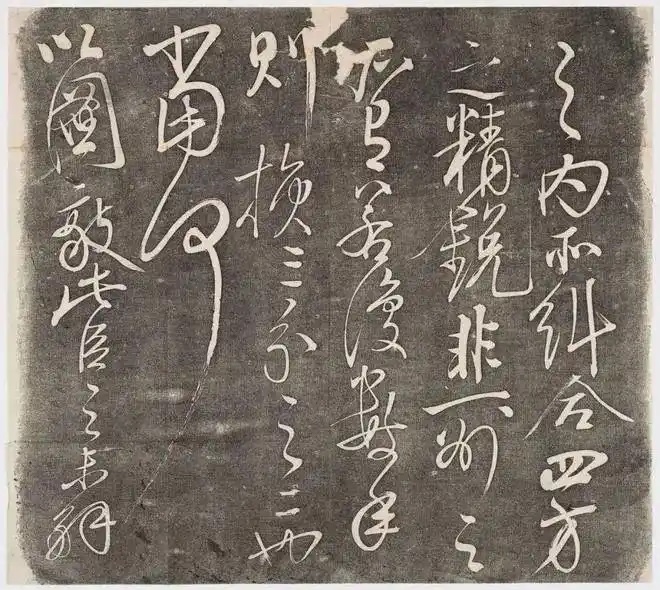 之内所糾合四方
之精鋭非一州之
所有若復數年
則損三分之二也
當何
以圖敵此臣之未解